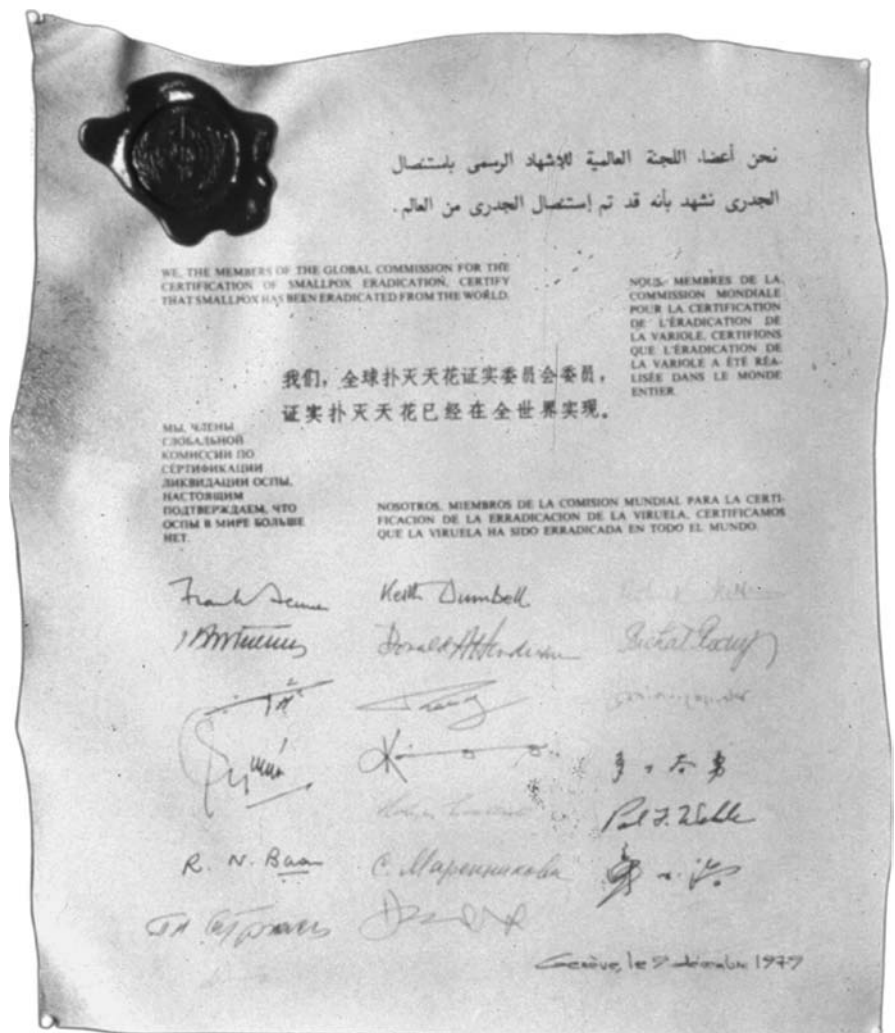 نحن أعضاء اللجنة العالمية للإشهاد الرسمى باستئصال
الجدرى نشهد بأنه قد تم إستئصال الجدرى من العالم .
WE, THE MEMBERS OF THE GLOBAL COMMISSION FOR THE
CERTIFICATION OF SMALLPOX ERADICATION, CERTIFY
THAT SMALLPOX HAS BEEN ERADICATED FROM THE WORLD.
NOUS, MEMBRES DE LA
COMMISSION MONDIALE
POUR LA CERTIFICATION
DE L'ÉRADICATION DE
LA VARIOLE, CERTIFIONS
QUE L'ÉRADICATION DE
LA VARIOLE A ÉTÉ RÉA-
LISÉE DANS LE MONDE
ENTIER.
我们，全球扑灭天花证实委员会委员，
证实扑灭天花已经在全世界实现。
МЫ, ЧЛЕНЫ
ГЛОБАЛЬНОЙ
КОМИССИИ ПО
СЕРТИФИКАЦИИ
ЛИКВИДАЦИИ ОСПЫ,
НАСТОЯЩИМ
ПОДТВЕРЖДАЕМ, ЧТО
ОСПЫ В МИРЕ БОЛЬШЕ
НЕТ.
NOSOTROS, MIEMBROS DE LA COMISION MUNDIAL PARA LA CERTI-
FICACION DE LA ERRADICACION DE LA VIRUELA, CERTIFICAMOS
QUE LA VIRUELA HA SIDO ERRADICADA EN TODO EL MUNDO.
Frank Fenner Keith Dumbell
Donald A Henderson
Paul F. Wehrle
R. N. Basu С. Маренникова
Genève, le 9 décembre 1979